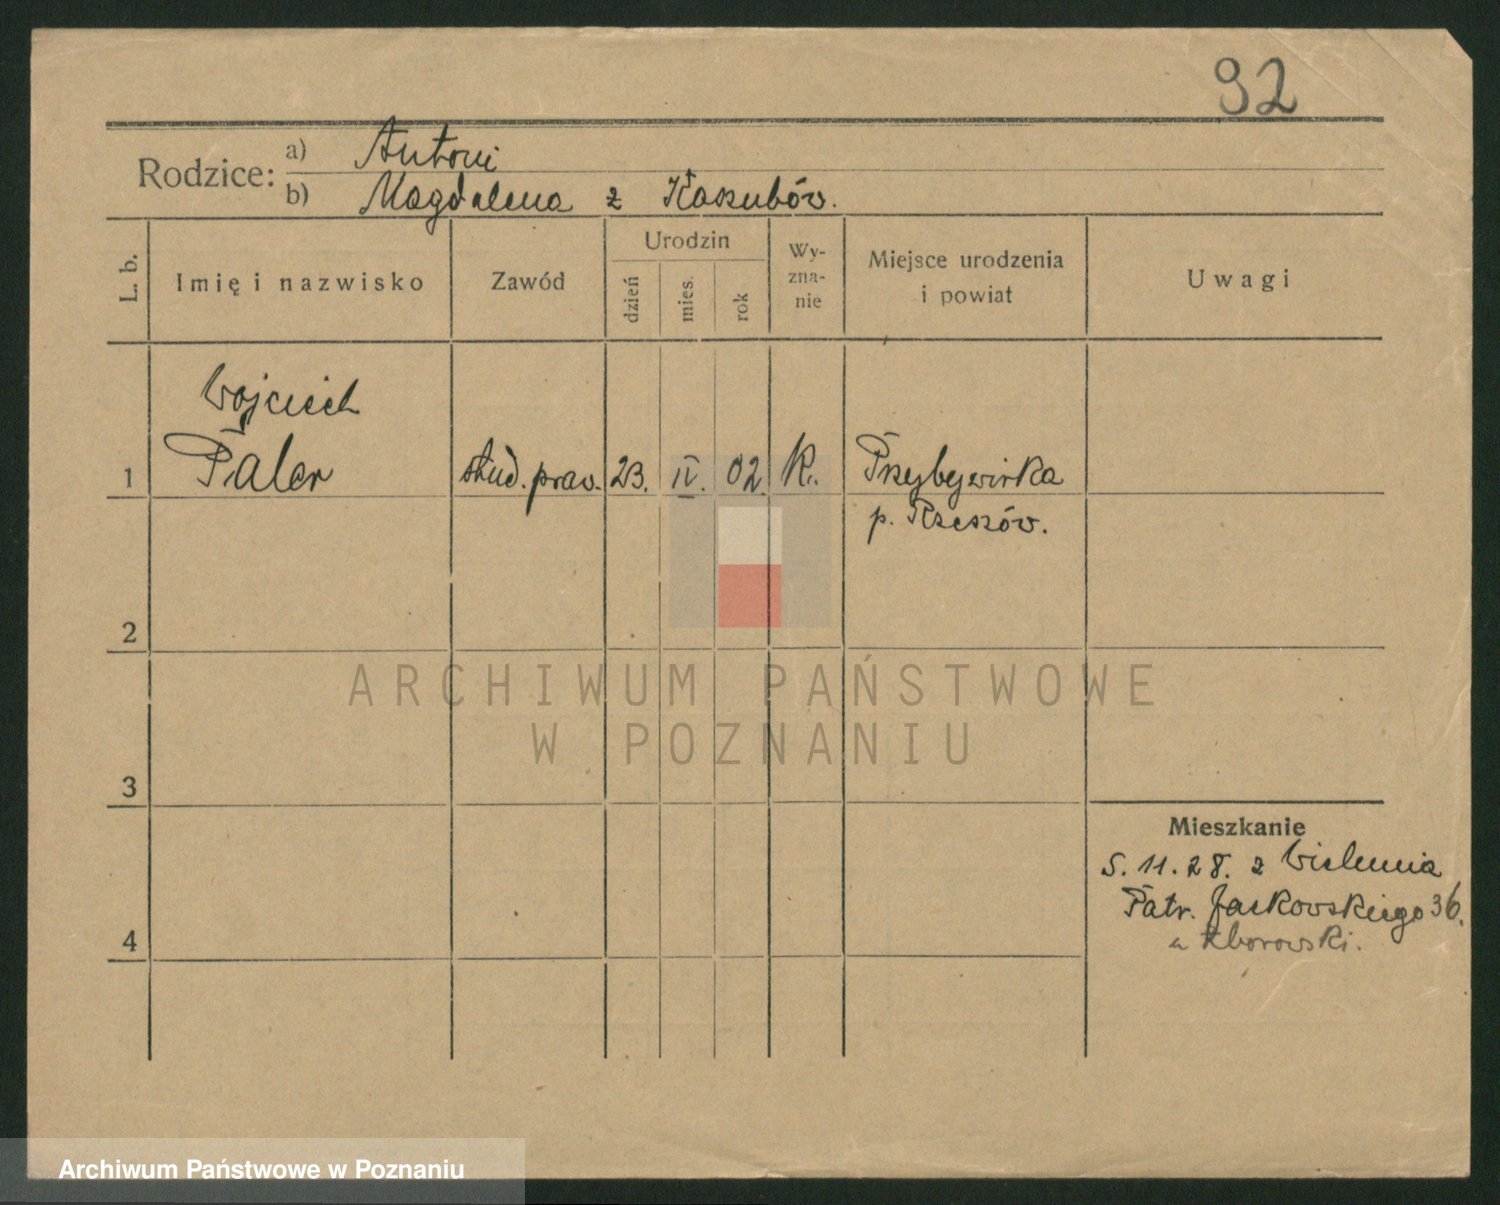 92
Rodzice: a) Antoni
b) Magdalena z Kaszubów.
L. b.
Imię i nazwisko
Zawód
Urodzin
dzień
mies.
rok
Wy-
zna-
nie
Miejsce urodzenia
i powiat
Uwagi
Wojciech
1 Paler stud. praw. 23. IV. 02. k. Przybyszówka
p. Rzeszów.
2
ARCHIWUM PAŃSTWOWE
W POZNANIU
3
Mieszkanie
5. 11. 28. z Wielunia
Patr. Jackowskiego 36.
4
Archiwum Państwowe w Poznaniu